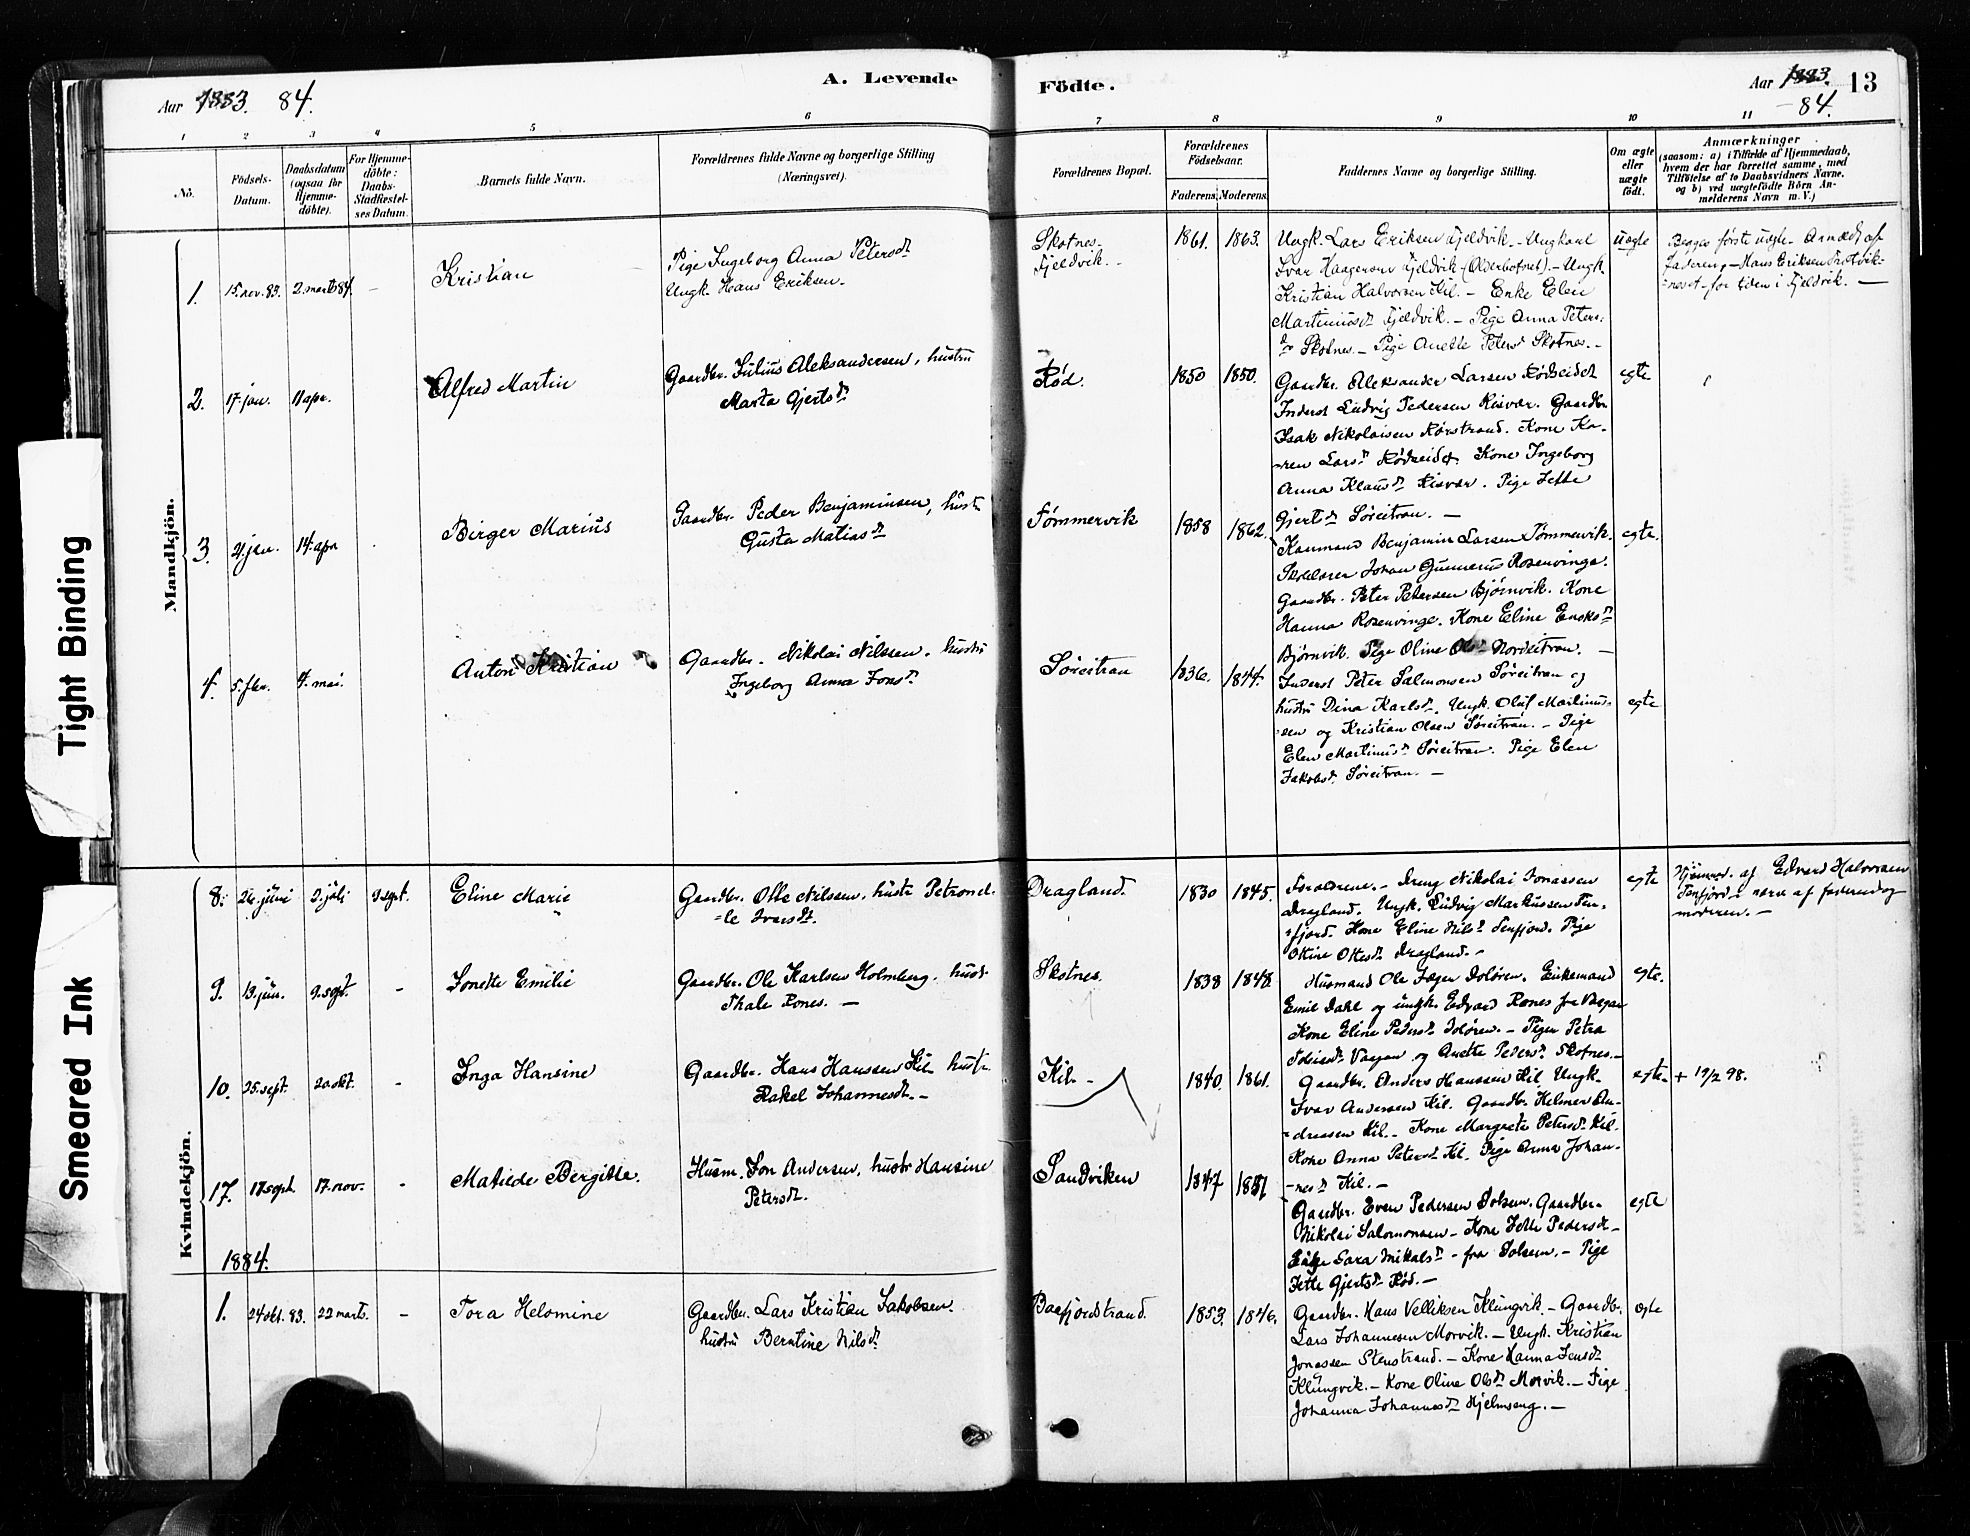 A. Levende
Födte.
Aar 1883. 84.
Aar 1883. 13
84.
1 2 3 4 5 6
7 8 9 10 11
No.
Födsels-
Datum.
Daabsdatum
(ogsaa for
Hjemme-
döbte).
For Hjemme-
döbte:
Daabs-
Stadfæstel-
ses Datum.
Barnets fulde Navn.
Forældrenes fulde Navne og borgerlige Stilling
(Næringsvei).
Forældrenes Bopæl.
Forældrenes
Födselsaar.
Faderens. Moderens.
Faddernes Navne og borgerlige Stilling.
Om ægte
eller
uægte
födt.
Anmærkninger
(saasom: a) i Tilfælde af Hjemmedaab,
hvem der har forrettet samme, med
Tilföielse af to Daabsvidners Navne,
og b) ved uægtefödte Börn An-
melderens Navn m. V.)
Mandkjön.
1. 15. nov. 83. 2. marts 84. –
Kristian
Pige Ingeborg Anna Petersdr
Ungk. Hans Eriksen.
Skotnes.
Fjeldvik.
1861. 1863.
Ungk. Lars Eriksen Fjeldvik. – Ungkarl
Ivar Haagensen Fjeldvik – Ungk.
Kristian Halvorsen Kil. – Enke Elen
Martinusdr Fjeldvik. – Pige Anna Peters-
dr Skotnes. – Pige Anette Petersdr Skotnes. –
uægte
Begges første uægte. Anmeldt af
faderen, – Hans Eriksen
– for tiden i Fjeldvik. –
2. 17. jan. 11 apr.
Alfred Martin
Gaardbr. Julius Aleksandersen, hustru
Marta Gjertsdr
Rød.
1850 1850.
Gaardbr. Aleksander Larsen Rødseidet
Inderst Ludvig Pedersen Risvær. Gaardbr.
Isak Nikolaisen Rørstrand. Kone Ka-
ren Larsdr Rødseidet. Kone Ingeborg
Anna Klausdr Risvær. Pige Jette
Gjertsdr Søreitran. –
egte
3. 21. jan. 14. apr
Birger Marius
Gaardbr. Peder Benjaminsen, hustr
Gusta Matiasdr
Tømmervik
1858 1862.
Kaarmand Benjamin Larsen Tømmervik.
Skolelærer Johan Gunnerus Rosenvinge.
Gaardbr. Peter Petersen Bjørnvik. Kone
Hanna Rosenvinge. Kone Eline Enoksdr
Bjørnvik. Pige Oline Olsdr Nordeitran. –
egte.
4. 5. fbr. 4. mai.
Anton Kristian
Gaardbr. Nikolai Nilssen, hustru
Ingeborg Anna Jonsdr
Søreitran
1836. 1844.
Inderst Peter Salmonsen Søreitran og
hustru Dina Karlsdr. Ungk. Oluf Martinus-
sen og Kristian Olsen Søreitran. – Pige
Elen Martinusdr Søreitran. Pige Elen
Jakobsdr. Søreitran. –
egte
Kvindekjön.
8. 26. juni 2. juli 9 sept.
Eline Marie
Gaardbr. Otte Nilsen, hustr Petronel-
le Ivarsdtr.
Dragland.
1830 1845.
Forældrene. – Dreng Nikolai Jonassen
Dragland. Ungk. Ludvig Markussen Ten-
fjord. Kone Eline Nilsdr Tenfjord. Pige
Otine Ottesdr Dragland. –
egte
Hjemmed. af Edvard Halvorsen
Tenfjord i nærv af faderen og
moderen. –
9. 13. jun. 9. sept. –
Jonette Emilie
Gaardbr. Ole Karlsen Holmberg, hustr
Thale Rones. –
Skotnes.
1838 1848.
Husmand Ole Jæger Doløren. Enkemand
Emil Dahl og ungk. Edvard Rones fra Vaagan
Kone Eline Pedersdr Doløren. – Piger Petra
Vaagan og Anette Pedersdr Skotnes. –
egte.
10. 25. sept. 20 okt. –
Inga Hansine
Gaardbr. Hans Hanssen Kil. hustr.
Rakel Johannesdr. –
Kil. –
1840. 1861.
Gaardbr. Anders Hanssen Kil. Ungk.
Ivar Andersen Kil. Gaardbr. Helmer An-
dreasen Kil. – Kone Margrete Petersdr Kil.
Kone Anna Petersdr Kil. Pige Anna Johan-
nesdr Kil. –
egte.
+ 19/2 98.
17. 17. sept. 17. nov. –
Matilde Bergitte.
Husm. Jon Andersen, hustr Hansine
Petersdr.
Sandviken
1847 1851
Gaardbr. Even Pedersen Dolsem. Gaardbr.
Nikolai Salomonsen – Kone Jette Pedersdr –
Enke Sara Mikalsdr – fra Dolsem. – Pige
Jette Gjertsdr Rød. –
egte
1884.
1. 24 okt. 83. 22 marts. –
Tora Helomine
Gaardbr. Lars Kristian Jakobsen.
hustru Berntine Nilsdr
Baafjordstrand.
1853. 1846.
Gaardbr. Hans Velliksen Klungvik. – Gaardbr.
Lars Johannesen Morvik. – Ungk. Kristian
Jonassen Stenstrand. – Kone Hanna Jensdr
Klungvik. – Kone Oline Olsdr Morvik. – Pige
Johanna Johannesdr Hjelmseng. –
egte
Tight Binding
Smeared Ink